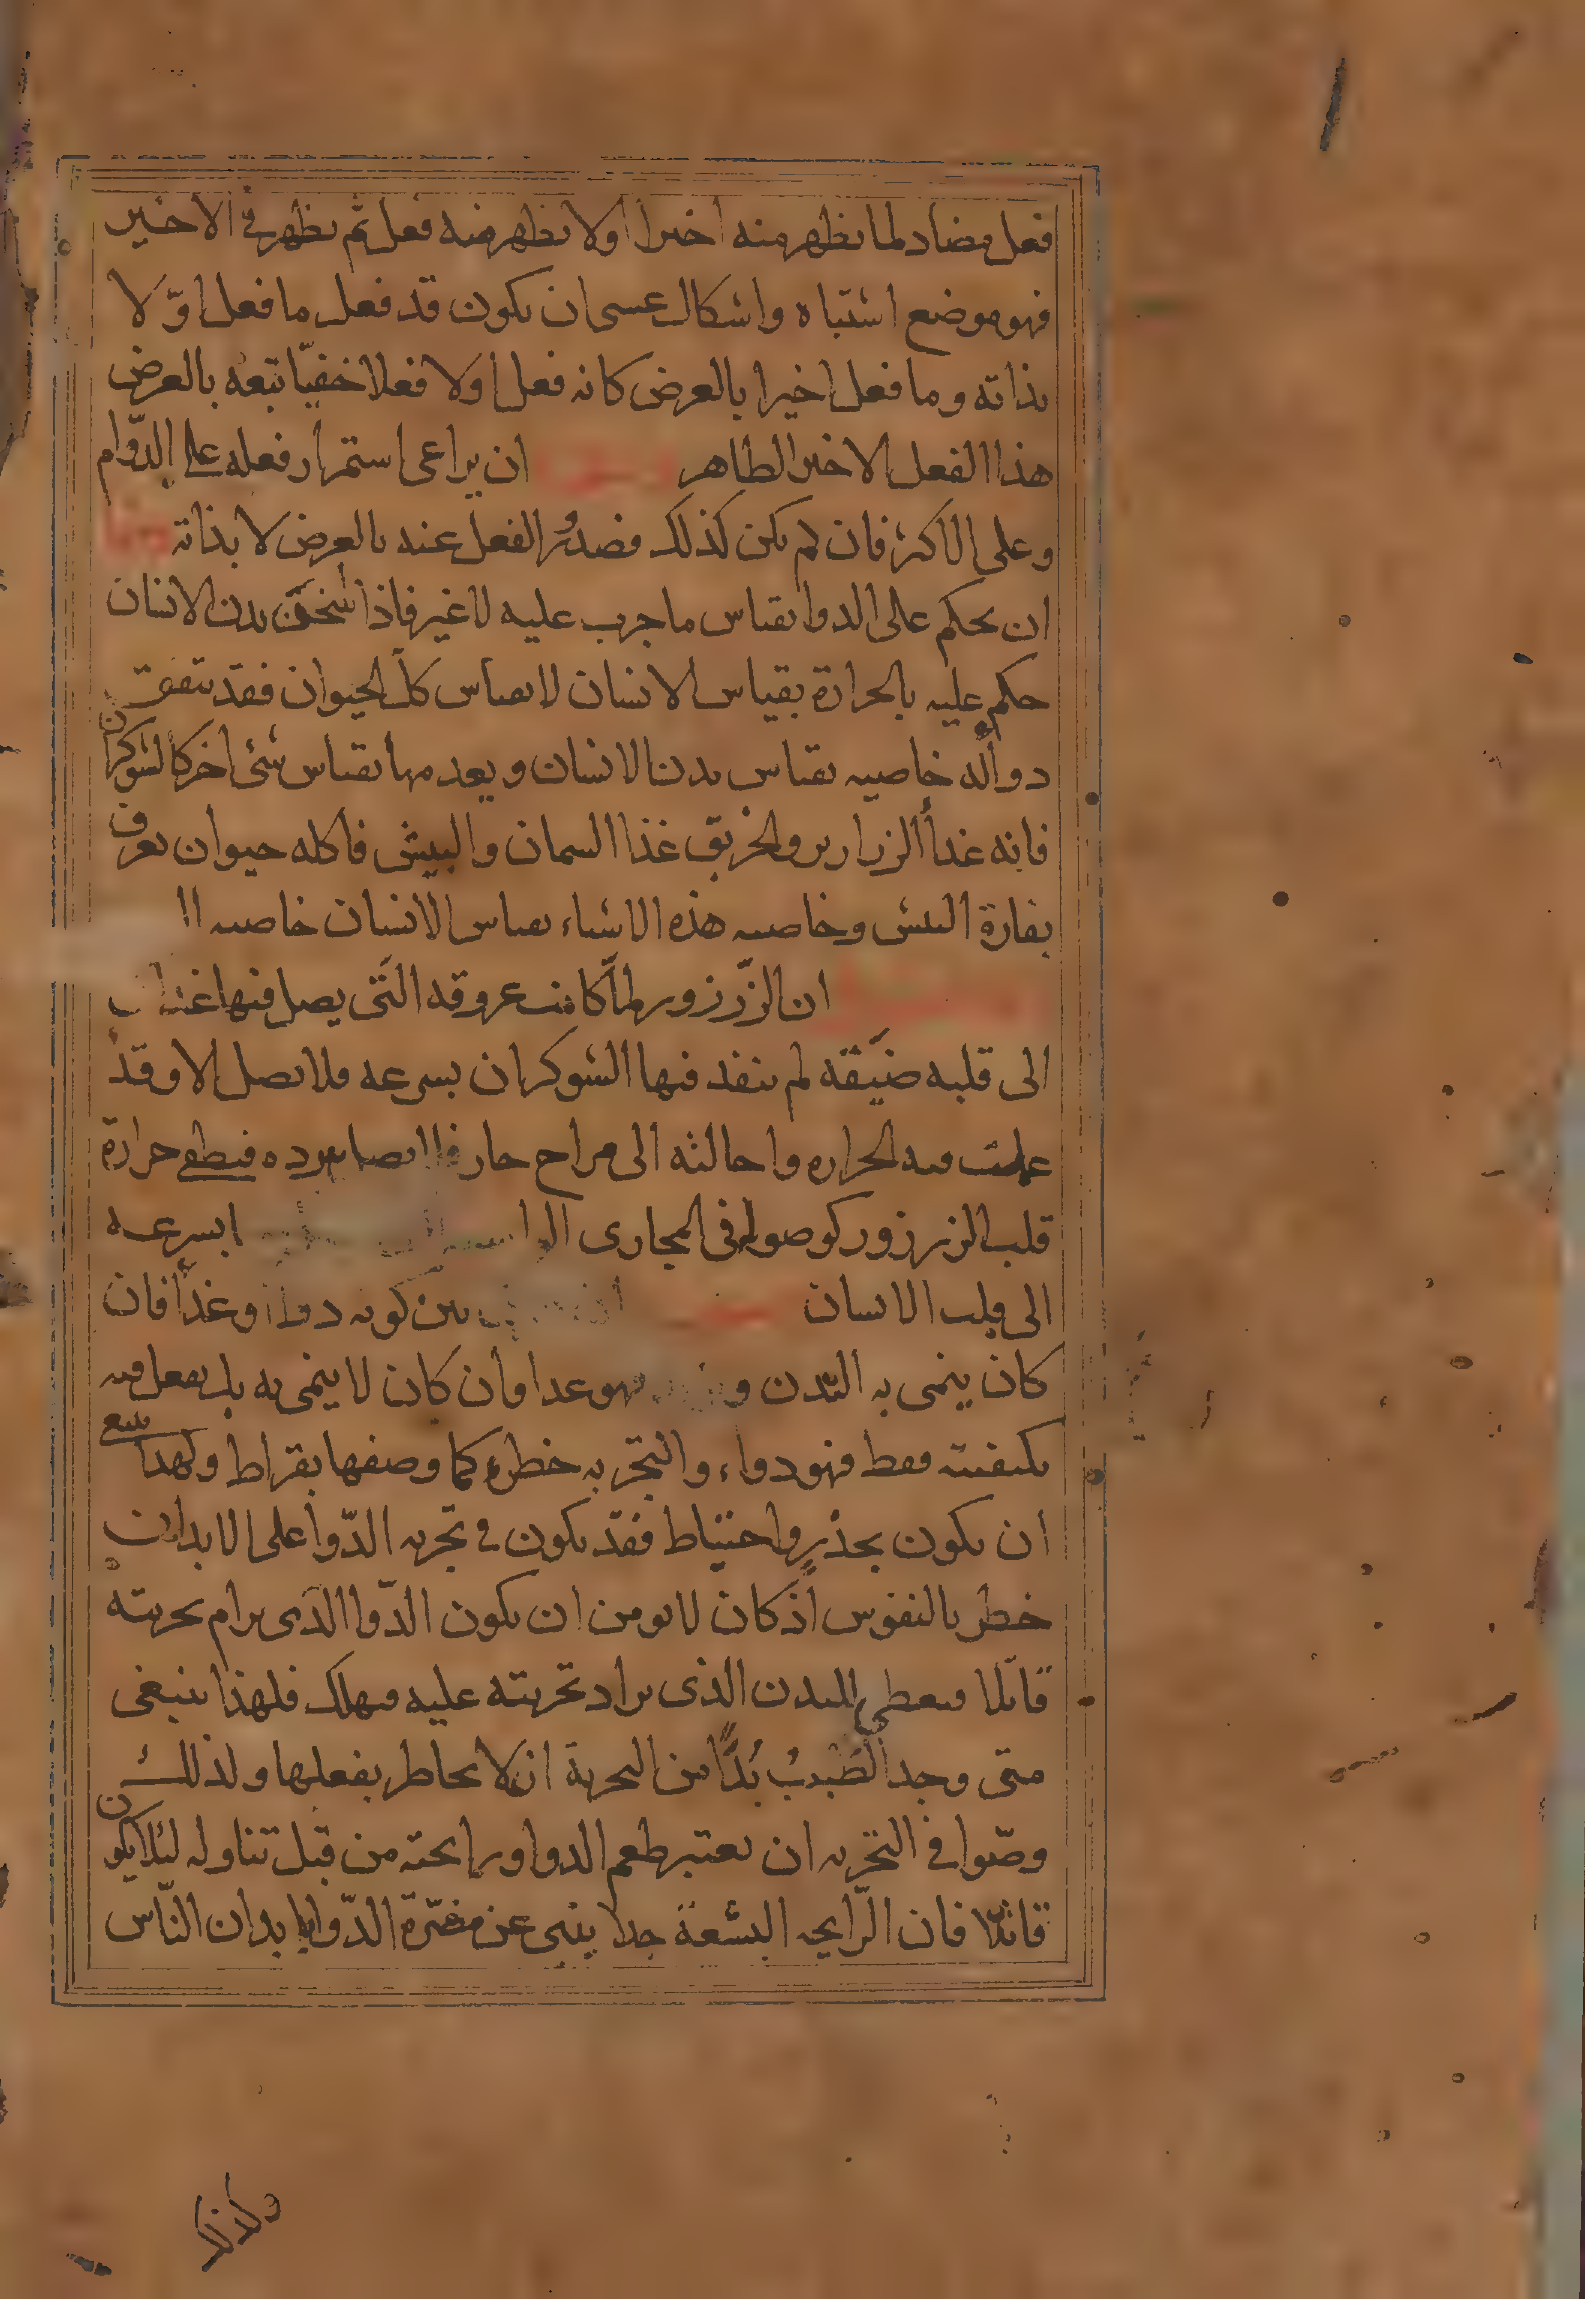 فعل مضاد لما يظهر منه اخيرا اولا يظهر منه فعل ثم يظهر في الاخير
فهو موضع اشتباه واشكال عسى ان يكون قد فعل ما فعل اوّلا
بذاته وما فعل اخيرا بالعرض كانه فعل اولا فعلا خفيّا تبعه بالعرض
هذا الفعل الاخير الظاهر ان يراعى استمرار فعله على الدّوام
وعلى الاكثر فان لم يكن كذلك فصدور الفعل عنه بالعرض لا بذاته
ان يحكم على الدوا بقياس ما جرب عليه لا غير فاذا سخن بدن الانسان
حكم عليه بالحرارة بقياس الانسان لا بقياس كل الحيوان فقد يتفق
دوا له خاصيه بقياس بدن الانسان ويعدمها بقياس شئ اخر كالشوكران
فانه غذأ الزرازير والخربق غذا السمان والبيش فاكله حيوان يعرف
بفارة البيش وخاصيه هذه الاشياء بقياس الانسان خاصيه
ان الزّرزور لمّا كانت عروقه التى يصل فيها
الى قلبه ضيّقه لم ينفذ فيها الشوكران بسرعه فلا يصل الا وقد
عملت فيه الحراره واحالته الى مزاج حار فيطفى حرارة
قلب الزرزور كوصوله فى المجارى بسرعه
الى قلب الانسان بين كونه دواا وغذأ فان
كان ينمى به البدن فهو غدا وان كان لا ينمى به بل يفعل فيه
بكيفيته فقط فهو دواء والتجربه خطره كما وصفها بقراط ولهذا ينبغى
ان يكون بحذرٍ واحتياط فقد يكون في تجربه الدّوا على الابدان
خطر بالنفوس اذ كان لا يومن ان يكون الدّوا الذى يرام تجربته
قاتلا فيعطى للبدن الذى يراد تجربته عليه فيهلك فلهذا ينبغى
متى وجد الطبيبُ بُدًّا من التجربة ان لا يخاطر بفعلها ولذلك
وصّوا في التجربه ان يعتبر طعم الدوا ورايحته من قبل تناوله لئلا يكون
قاتلًا فان الرّايحه البشعة جدا ينبى عن مضرّة الدّوا بابدان النّاس